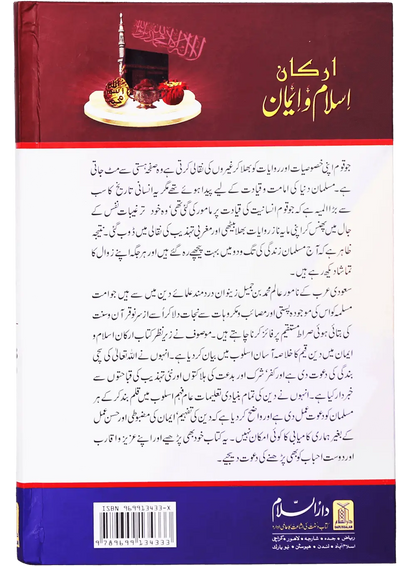 ارکان
اسلام و ایمان
جو قوم اپنی خصوصیات اور روایات کو بھلا کر غیروں کی نقالی کرتی ہے وہ صفحۂ ہستی سے مٹ جاتی
ہے۔ مسلمان دنیا کی امامت و قیادت کے لیے پیدا ہوئے تھے مگر یہ انسانی تاریخ کا سب
سے بڑا المیہ ہے کہ جو قوم انسانیت کی قیادت پر مامور کی گئی تھی، وہ خود ترغیبات نفس کے
جال میں پھنس کر اپنی مایہ ناز روایات بھلا بیٹھی اور مغربی تہذیب کی نقالی میں ڈوب گئی۔ نتیجہ
ظاہر ہے کہ آج مسلمان زندگی کی تگ و دو میں بہت پیچھے رہ گئے ہیں اور ہر جگہ اپنے زوال کا
تماشا دیکھ رہے ہیں۔
سعودی عرب کے نامور عالم محمد بن جمیل زینو ان دردمند علمائے دین میں سے ہیں جو امت
مسلمہ کو اس کی موجودہ پستی اور مصائب و مکروہات سے نجات دلا کر اسے از سر نو قرآن و سنت
کی بتائی ہوئی صراط مستقیم پر فائز کرنا چاہتے ہیں۔ موصوف نے زیر نظر کتاب ارکان اسلام و
ایمان میں دین قیم کا خلاصہ آسان اسلوب میں بیان کر دیا ہے۔ انہوں نے اللہ تعالیٰ کی سچی
بندگی کی دعوت دی ہے اور کفر، شرک اور بدعت کی ہلاکتوں اور نئی تہذیب کی قباحتوں سے
خبردار کیا ہے۔ انہوں نے دین کی تمام بنیادی تعلیمات عام فہم اسلوب میں قلم بند کر کے ہر
مسلمان کو دعوت عمل دی ہے اور واضح کر دیا ہے کہ دین کی تفہیم، ایمان کی مضبوطی اور حسن عمل
کے بغیر ہماری کامیابی کا کوئی امکان نہیں۔ یہ کتاب خود بھی پڑھیے اور اپنے عزیز و اقارب
اور دوست احباب کو بھی پڑھنے کی دعوت دیجیے۔
ISBN 969913433-X
9 789699 134333
دارالسلام
کتاب و سنت کی اشاعت کا عالمی ادارہ
ریاض • جدہ • شارجہ • لاہور • کراچی
اسلام آباد • لندن • ہیوسٹن • نیو یارک